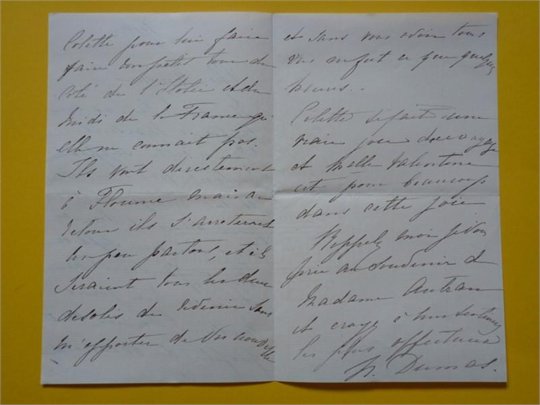 Colette pour lui faire
faire un petit tour du
coté de l'Italie et du
midi de la France qu'
elle ne connait pas.
Ils vont directement
à Florence mais au
retour ils s'arreteront
un peu partout, et ils
seraient tous les deux
désolés de revenir sans
m'apporter de vos nouvelles
et sans vous voir tous
ne
heures.
Colette se fait une
vraie joie de ce voyage
et Melle Valentine
est pour beaucoup
dans cette joie
Rappelez moi je vous
prie au souvenir de
Madame Autran
et croyez à mes
les plus affectueux
Dumas.